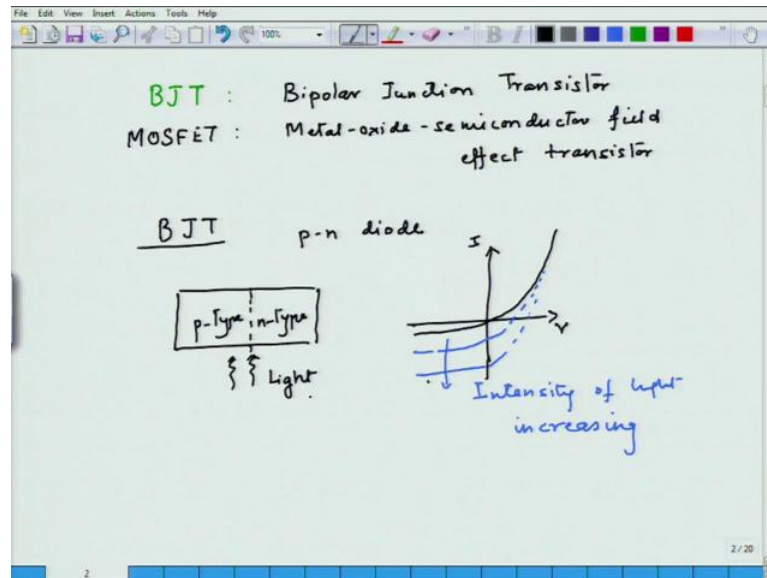 File Edit View Insert Actions Tools Help
100%
B I
BJT : Bipolar Junction Transistor
MOSFET : Metal-oxide-semiconductor field
effect transistor
BJT p-n diode
I
p-Type n-Type
V
Light
Intensity of light
increasing
2/20
2